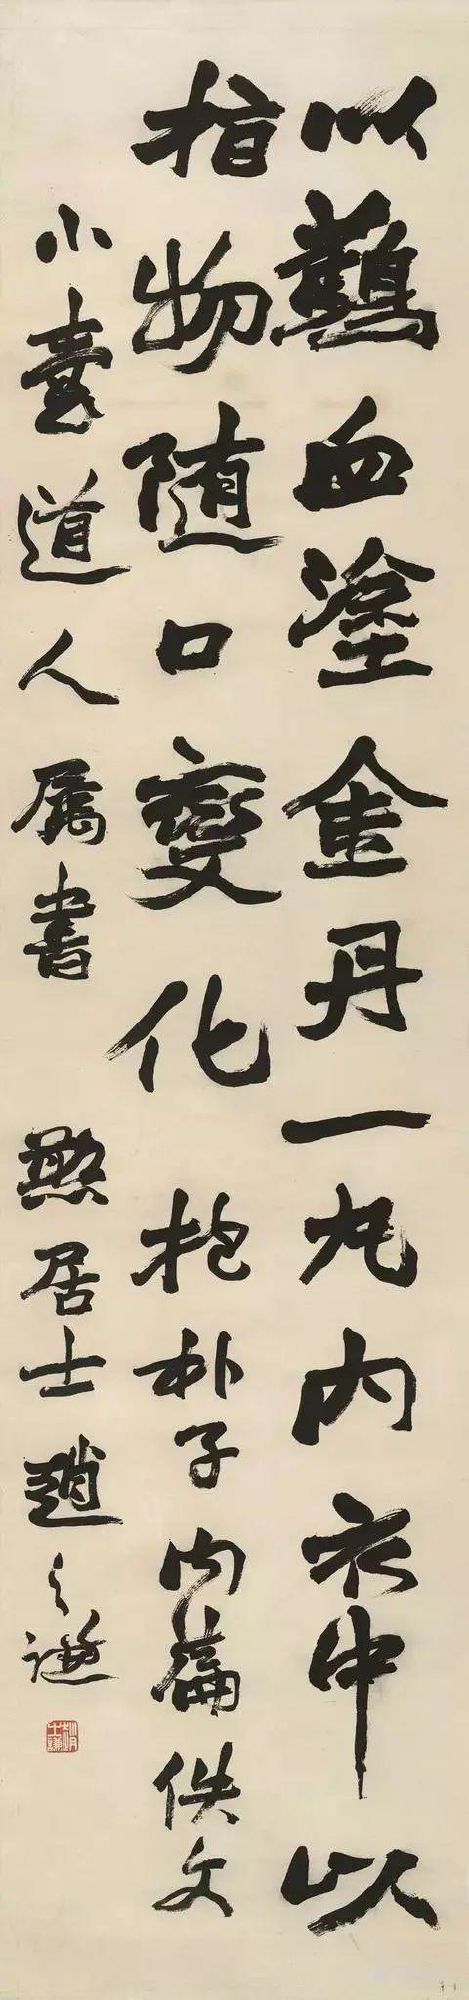 以鷰血塗金丹一丸內衣中以
指物随口變化 抱朴子內篇佚文
小道人属書 憨居士趙之謙